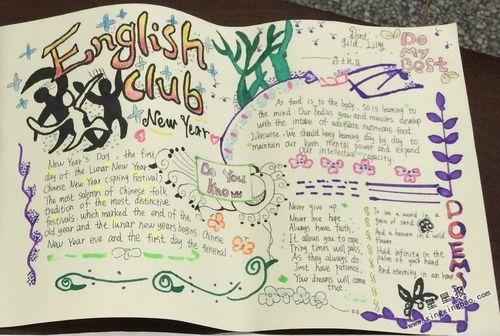 English
club
New Year
New Year's Day, the first
day of the Lunar New Year
Chinese New Year spring festival
The most solemn of Chinese folk
tradition of the most distinctive
festivals, which marked the end of the
old year and the lunar new years begins. Chinese
New Year eve and the first day the general
Do You
Know
Don't
gild Lily
Do
My
Best
As food is to the body, so is learning to
the mind. Our bodies grow and muscles develop
with the intake of adequate nutritious food
Likewise. We should keep learning day by day to
maintain our keen mental power and expand
our intellectual capacity
Never give up,
Never lose hope
Always have faith,
It allows you to cope
Trying times will pass,
As they always do.
Just have patience,
Your dreams will come
true
POEM
To see a world in a
grain of sand
And a heaven in a wild
flower
Hold infinity in the
palm of your hand
And eternity in an hour
星星报
www.xingxingbao.com